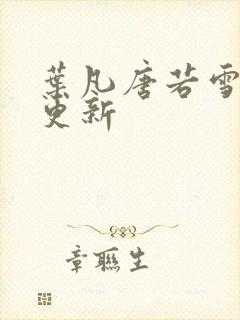 葉凡唐若雪
更新
章聯生